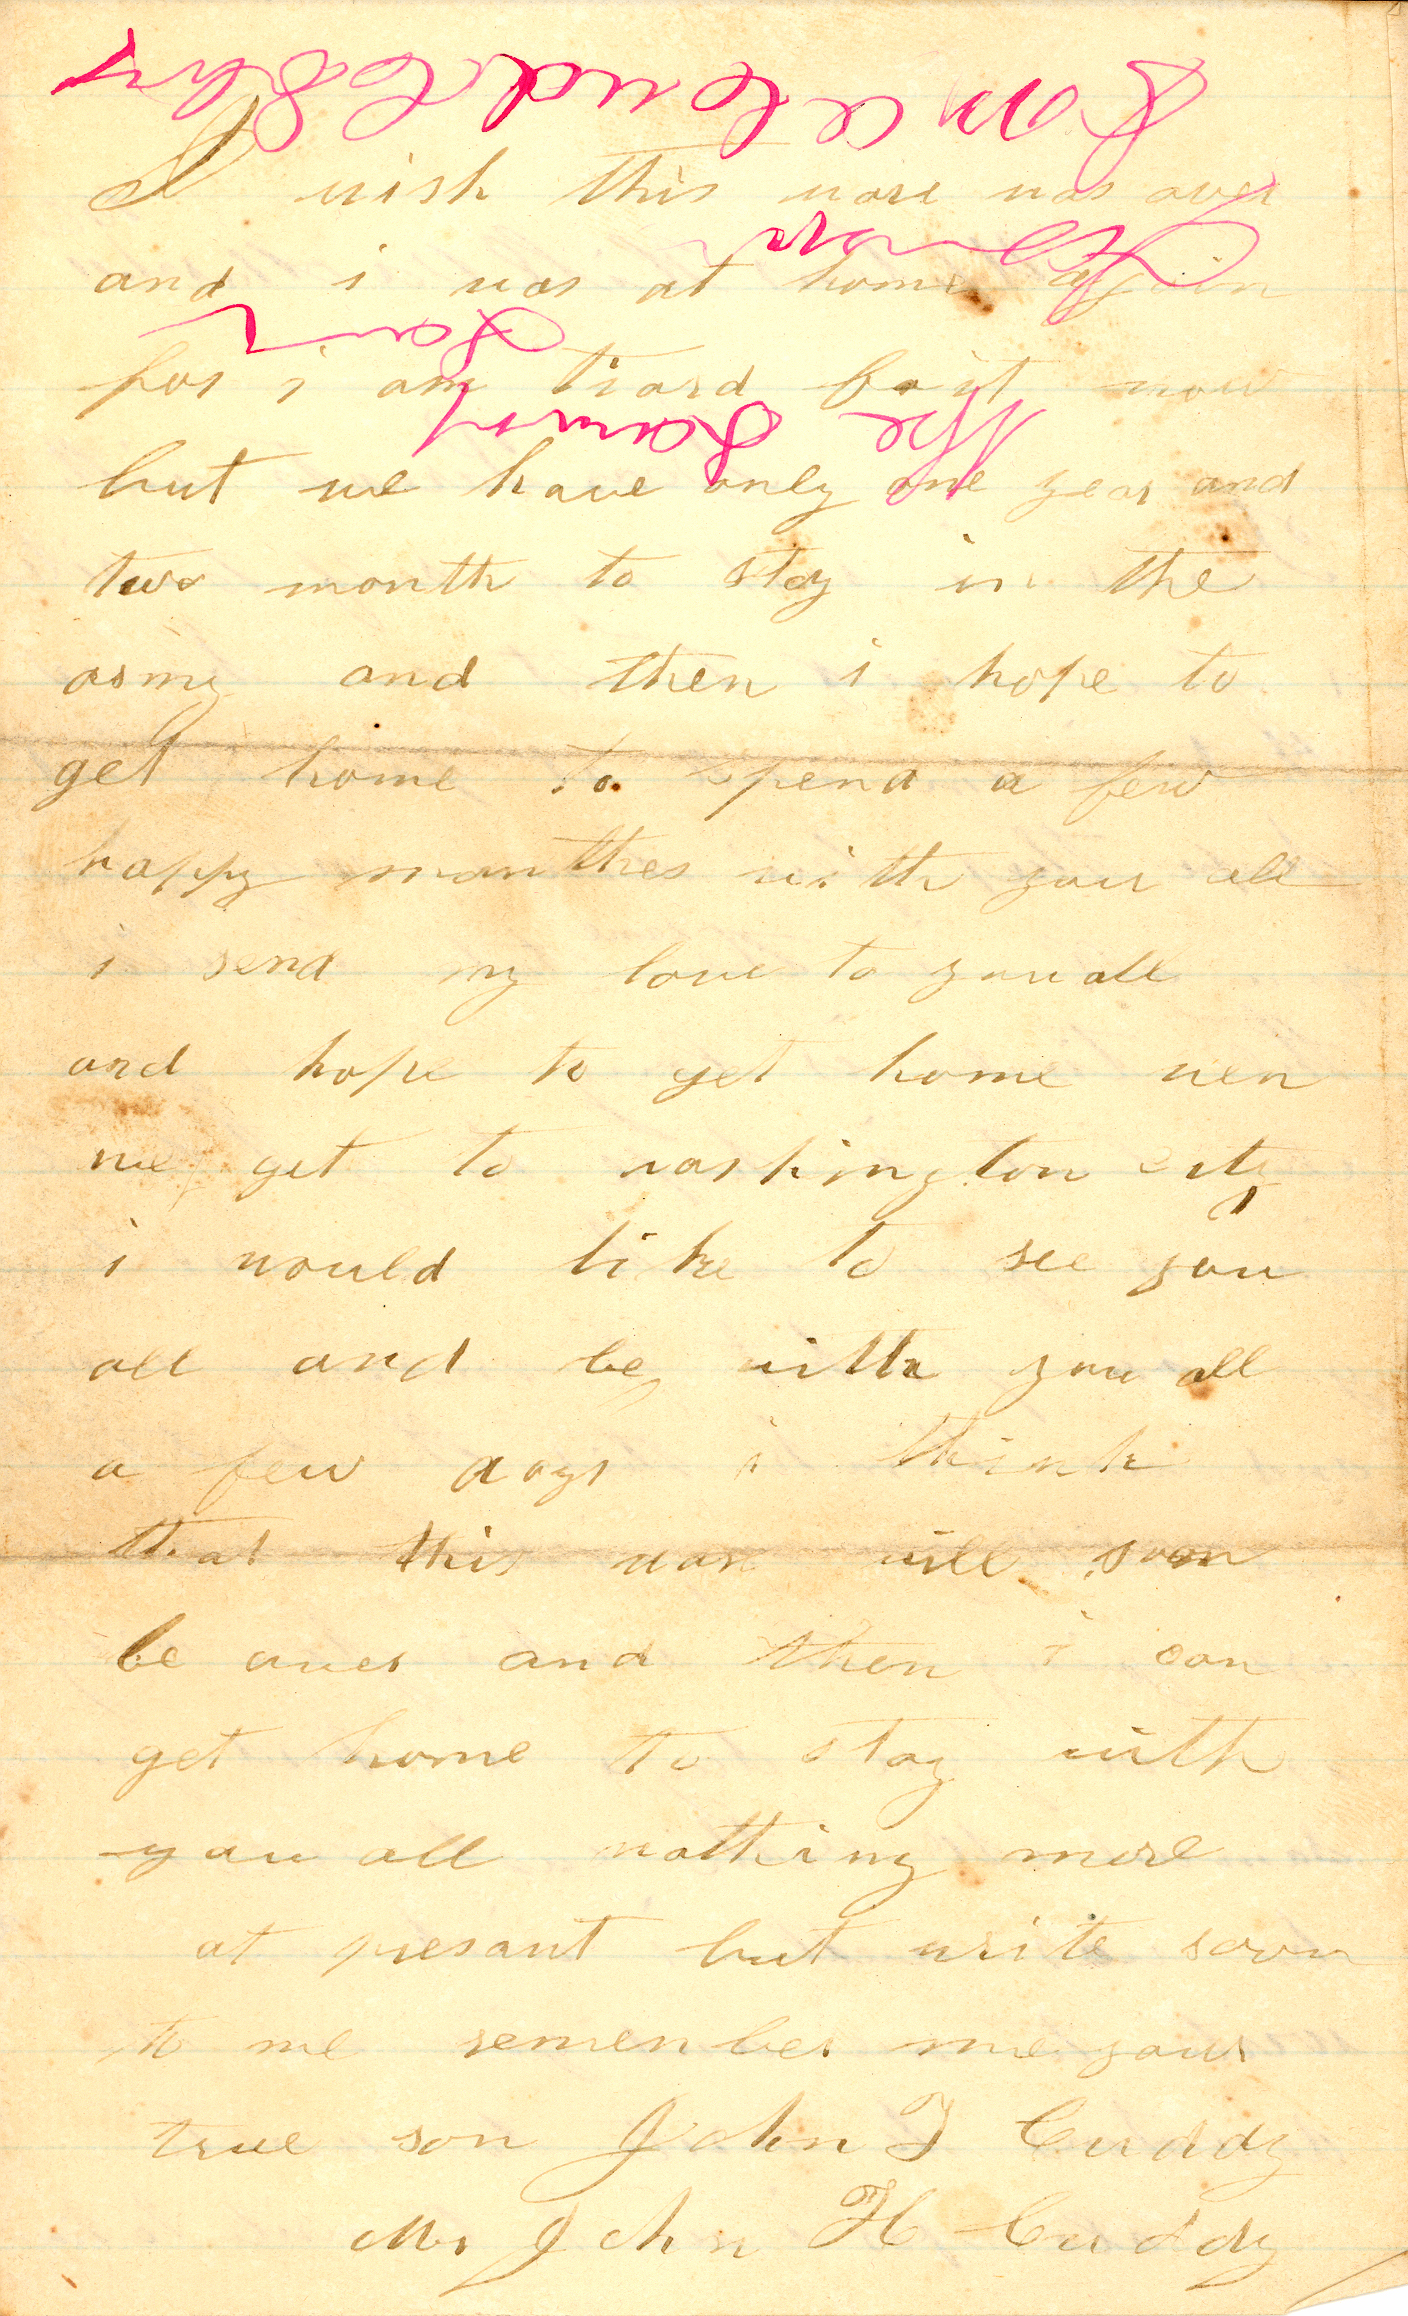 I wish this ware was over
and i was at home again
for i am tiard fo it now
but we have only one year and
two month to stay in the
army and then i hope to
get home to spend a few
happy monthes with you all
i send my love to you all
and hope to get home wen
we get to washington city
i would like to see you
all and be with you all
a few days i think
that this ware will soon
be over and then i can
get home to stay with
you all nothing more
at presant but write soon
to me remember me your
true son John T Cuddy
Mr John H Cuddy